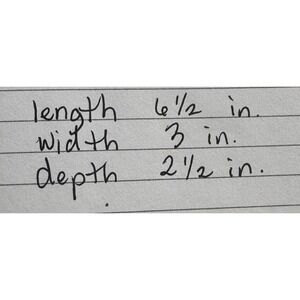 length 6 1/2 in.
width 3 in.
depth 2 1/2 in.